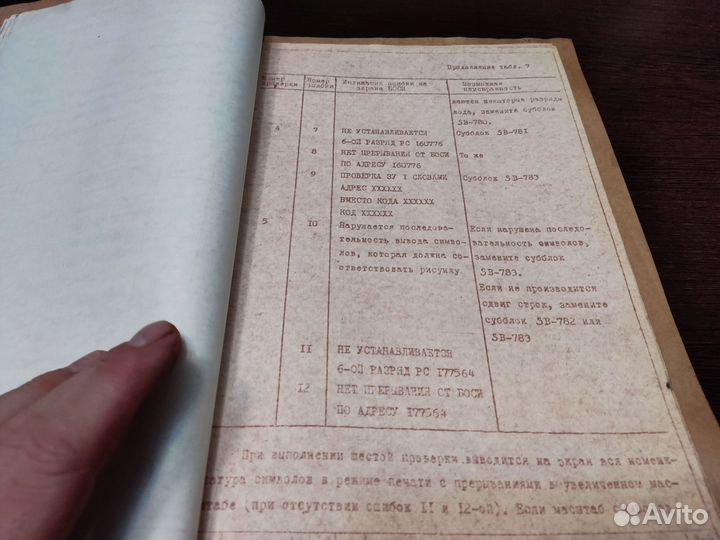 Продолжение табл. 7
Номер проверки Номер ошибки Индикация ошибки на экране БОСИ Возможная неисправность
ваются некоторые разряды
кода, замените субблок
5В-780.
4 7 НЕ УСТАНАВЛИВАЕТСЯ Субблок 5В-781
6-ОЙ РАЗРЯД РС 160776
8 НЕТ ПРЕРЫВАНИЯ ОТ БОСИ То же
ПО АДРЕСУ 160776
9 ПРОВЕРКА ЗУ I СЛОВАМИ Субблок 5В-783
АДРЕС XXXXXX
ВМЕСТО КОДА XXXXXX
КОД XXXXXX
5 10 Нарушается последова- Если нарушена последо-
тельность вывода симво- вательность символов,
лов, которая должна со- замените субблок
ответствовать рисунку 5В-783.
Если не производится
сдвиг строк, замените
субблок 5В-782 или
5В-783
11 НЕ УСТАНАВЛИВАЕТСЯ
6-ОЙ РАЗРЯД РС 177564
12 НЕТ ПРЕРЫВАНИЯ ОТ БОСИ
ПО АДРЕСУ 177564
При выполнении шестой проверки выводится на экран вся номенк-
латура символов в режиме печати с прерываниями в увеличенном мас-
штабе (при отсутствии ошибок 11 и 12-ой). Если масштаб
Avito